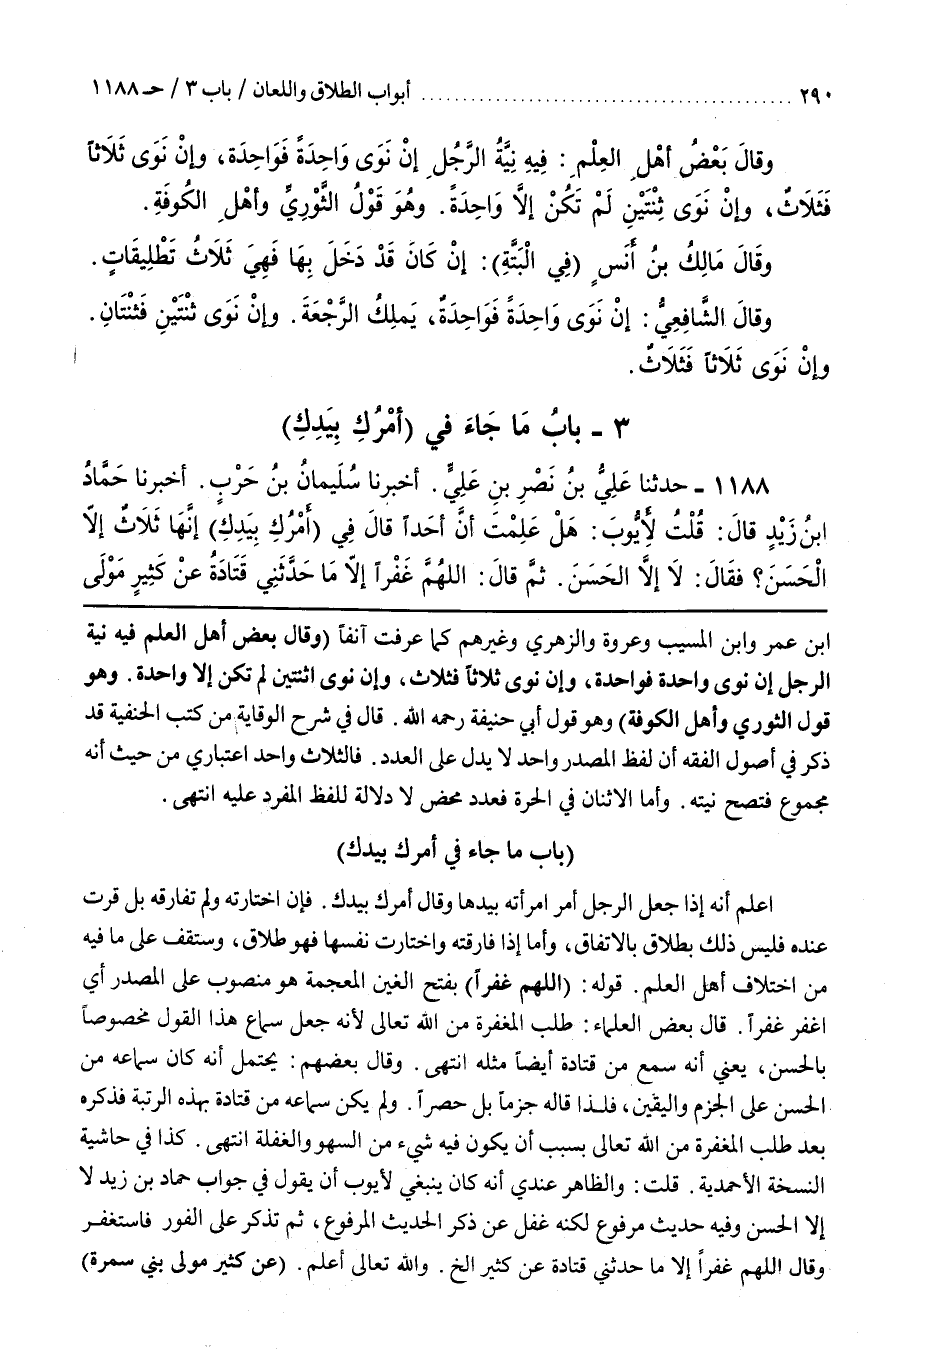 ٢٩٠ ........................................ أبواب الطلاق واللعان / باب ٣ / حـ ١١٨٨
وقالَ بَعْضُ أهْلِ العِلْمِ : فِيهِ نِيَّةُ الرَّجُلِ إنْ نَوَى وَاحِدَةً فَوَاحِدَة، وإنْ نَوَى ثَلَاثاً
فَثَلَاثٌ، وإنْ نَوَى ثِنْتَيْنِ لَمْ تَكُنْ إلَّا وَاحِدَةً. وهُوَ قَوْلُ الثَّوْرِيِّ وأهْلِ الكُوفَةِ.
وقَالَ مَالِكُ بنُ أَنَسٍ (فِي الْبَتَّةِ): إنْ كَانَ قَدْ دَخَلَ بِهَا فَهِيَ ثَلَاثُ تَطْلِيقَاتٍ.
وقالَ الشَّافِعِيُّ: إنْ نَوَى وَاحِدَةً فَوَاحِدَةٌ، يَملِكُ الرَّجْعَةَ. وإنْ نَوَى ثْنْتَيْنِ فَثْنْتَانِ.
وإنْ نَوَى ثَلَاثاً فَثَلَاثٌ.
٣ ـ بابُ مَا جَاءَ في (أمْرُكِ بِيَدِكِ)
١١٨٨ ـ حدثنا عَلِيُّ بنُ نَصْرِ بنِ عَلِيٍّ. أخبرنا سُلَيمانُ بنُ حَرْبٍ. أخبرنا حَمَّادُ
ابنُ زَيْدٍ قالَ: قُلْتُ لأَيُّوبَ: هَلْ عَلِمْتَ أنَّ أحَداً قالَ فِي (أَمْرُكِ بِيَدِكِ) إنَّهَا ثَلَاثٌ إلَّا
الْحَسَنَ؟ فقَالَ: لَا إلَّا الحَسَنَ. ثمَّ قالَ: اللهُمَّ غَفْراً إلَّا مَا حَدَّثَنِي قَتَادَةُ عنْ كَثِيرٍ مَوْلَى
ابن عمر وابن المسيب وعروة والزهري وغيرهم كما عرفت آنفاً (وقال بعض أهل العلم فيه نية
الرجل إن نوى واحدة فواحدة، وإن نوى ثلاثاً فثلاث، وإن نوى اثنتين لم تكن إلا واحدة. وهو
قول الثوري وأهل الكوفة) وهو قول أبي حنيفة رحمه الله. قال في شرح الوقاية من كتب الحنفية قد
ذكر في أصول الفقه أن لفظ المصدر واحد لا يدل على العدد. فالثلاث واحد اعتباري من حيث أنه
مجموع فتصح نيته. وأما الاثنان في الحرة فعدد محض لا دلالة للفظ المفرد عليه انتهى.
(باب ما جاء في أمرك بيدك)
اعلم أنه إذا جعل الرجل أمر امرأته بيدها وقال أمرك بيدك. فإن اختارته ولم تفارقه بل قرت
عنده فليس ذلك بطلاق بالاتفاق، وأما إذا فارقته واختارت نفسها فهو طلاق، وستقف على ما فيه
من اختلاف أهل العلم. قوله: (اللهم غفراً) بفتح الغين المعجمة هو منصوب على المصدر أي
اغفر غفراً. قال بعض العلماء: طلب المغفرة من الله تعالى لأنه جعل سماع هذا القول مخصوصاً
بالحسن، يعني أنه سمع من قتادة أيضاً مثله انتهى. وقال بعضهم: يحتمل أنه كان سماعه من
الحسن على الجزم واليقين، فلذا قاله جزماً بل حصراً. ولم يكن سماعه من قتادة بهذه الرتبة فذكره
بعد طلب المغفرة من الله تعالى بسبب أن يكون فيه شيء من السهو والغفلة انتهى. كذا في حاشية
النسخة الأحمدية. قلت: والظاهر عندي أنه كان ينبغي لأيوب أن يقول في جواب حماد بن زيد لا
إلا الحسن وفيه حديث مرفوع لكنه غفل عن ذكر الحديث المرفوع، ثم تذكر على الفور فاستغفر
وقال اللهم غفراً إلا ما حدثني قتادة عن كثير الخ. والله تعالى أعلم. (عن كثير مولى بني سمرة)